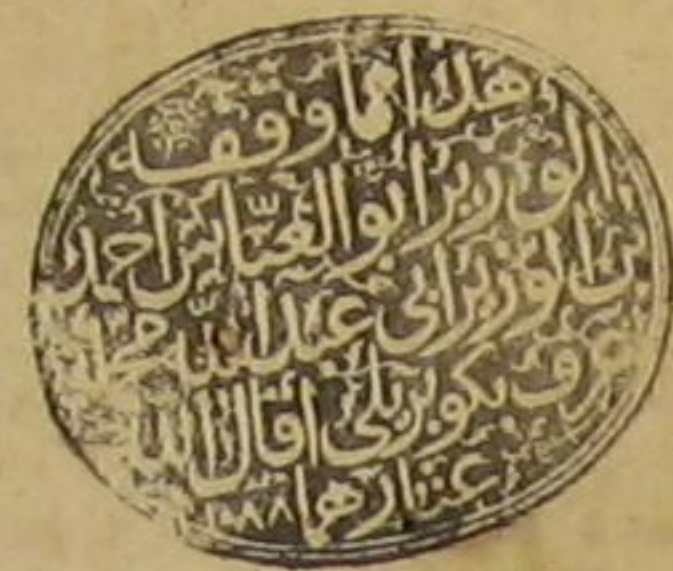 هذا مما وقفه
الوزير ابو العباس احمد
بن الوزير ابي عبد الله محمد
عرف بكوبريلي اقال الله
عثارهما
١٠٨٨